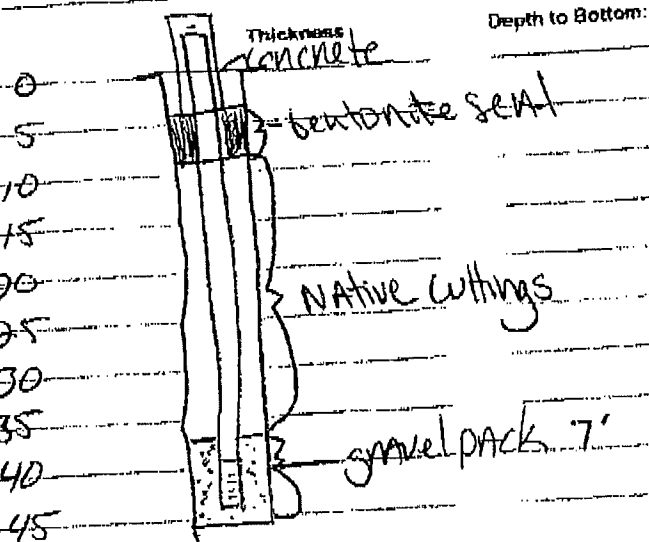 Thickness
Depth to Bottom:
concrete
0
5
bentonite seal
10
15
20
Native cuttings
25
30
35
gravel pack 7'
40
45